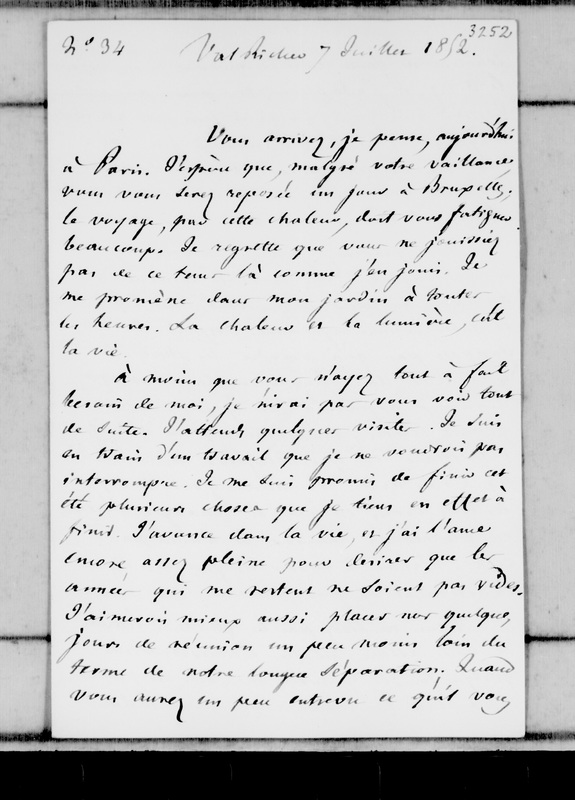 3252
N° 34 Val Richer 7 Juillet 1852.
Vous arrivez, je pense, aujourd'hui
à Paris. J'espère que, malgré votre vaillance,
vous vous serez reposée un jour à Bruxelles.
le voyage, par cette chaleur, doit vous fatiguer
beaucoup. Je regrette que vous ne jouissiez
pas de ce tems là comme j'en jouis. Je
me promène dans mon jardin à toutes
les heures. La chaleur et la lumière, c'est
la vie.
À moins que vous n'ayez tout à fait
besoin de moi, je n'irai pas vous voir tout
de suite. J'attends quelques visites. Je suis
en train d'un travail que je ne voudrois pas
interrompre. Je me suis promis de finir cet
été plusieurs choses que je tiens en effet à
finir. J'avance dans la vie, et j'ai l'ame
encore assez pleine pour desirer que les
années qui me restent ne soient pas vides.
J'aimerois mieux aussi placer nos quelques
jours de réunion un peu moins loin du
terme de notre longue séparation. Quand
vous aurez un peu entrevu ce qu'il vous